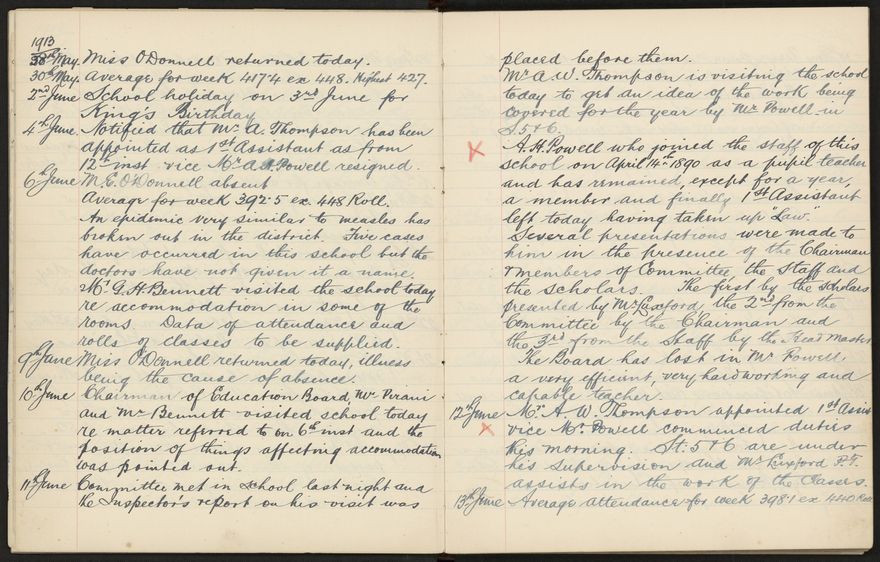 1913
28th May. Miss O'Donnell returned today.
30th May. Average for week 417.4 ex 448. Highest 427.
2nd June School holiday on 3rd June for
King's Birthday
4th June Notified that Mr A. Thompson has been
appointed as 1st Assistant as from
12th inst vice Mr A.H. Powell resigned.
6th June M. E. O'Donnell absent
Average for week 392.5 ex. 448 Roll.
An epidemic very similar to measles has
broken out in the district. Five cases
have occurred in this school but the
doctors have not given it a name.
Mr G. H. Bennett visited the school today
re accommodation in some of the
rooms. Data of attendance and
rolls of classes to be supplied.
9th June Miss O'Donnell returned today, illness
being the cause of absence.
10th June Chairman of Education Board, Mr Pirani
and Mr Bennett visited school today
re matter referred to on 6th inst and the
position of things affecting accommodation
was pointed out.
11th June Committee met in School last night and
the Inspector's report on his visit was
placed before them.
Mr A. W. Thompson is visiting the school
today to get an idea of the work being
covered for the year by Mr Powell in
S. 5 & 6.
X A. H. Powell who joined the staff of this
school on April 14th 1890 as a pupil teacher
and has remained, except for a year,
a member and finally 1st Assistant
left today having taken up "Law".
Several presentations were made to
him in the presence of the Chairman
& members of Committee, the Staff and
the scholars. The first by the scholars
presented by Mr Luxford, the 2nd from the
Committee by the Chairman and
the 3rd from the Staff by the Head Master
The Board has lost in Mr Powell,
a very efficient, very hardworking and
capable teacher.
12th June Mr A. W. Thompson appointed 1st Assist
X vice Mr Powell commenced duties
this morning. St. 5 & 6 are under
his supervision and Mr Luxford P.T.
assists in the work of the Classes.
13th June Average attendance for week 398.1 ex 440 Roll